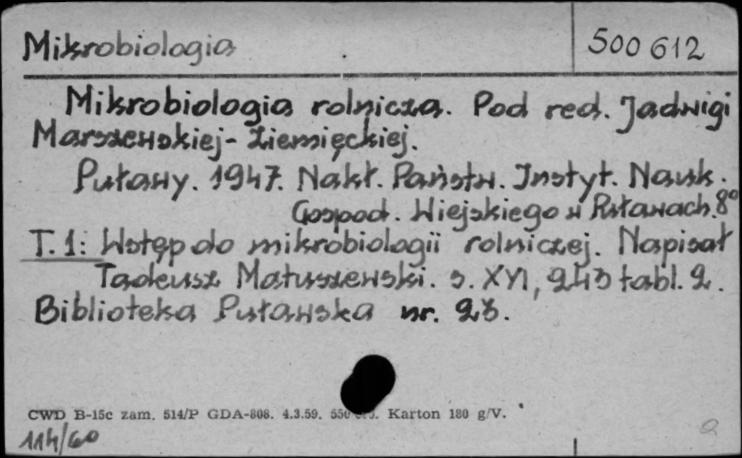 Mikrobiologia
500 612
Mikrobiologia rolnicza. Pod red. Jadwigi
Marszewskiej-Ziemięckiej.
Puławy. 1947. Nakł. Państw. Instyt. Nauk.
Gospod. Wiejskiego w Puławach. 8°
T. 1: Wstęp do mikrobiologii rolniczej. Napisał
Tadeusz Matuszewski. s. XVI, 243 tabl. 2.
Biblioteka Puławska nr. 23.
CWD B-15c zam. 514/P GDA-808. 4.3.59. Karton 180 g/V.
114/60